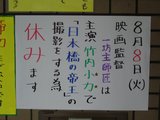 8月8日(火)
映画監督
一坊主師匠は
主演 竹内小力で
「日本橋の帝王」の
撮影をする為、
休みます